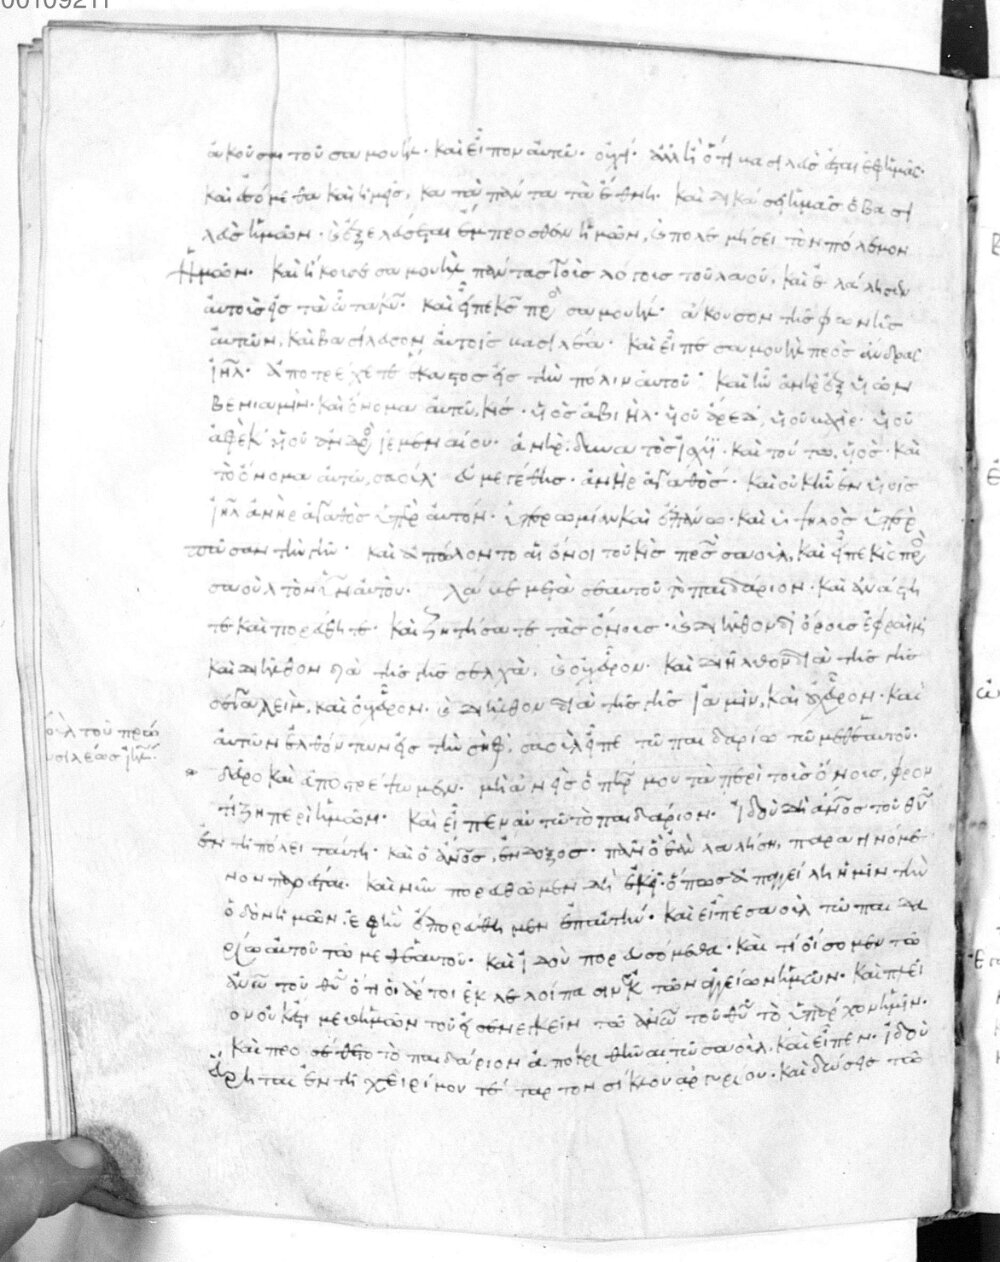 00109211
ἀκοῦσαι τοῦ σαμουὴλ· καὶ εἶπον αὐτῶ· οὐχί· ἀλλ ἢ ὅτι βασιλεὺς ἔσται ἐφ ἡμᾶς·
καὶ ἐσόμεθα καὶ ἡμεῖς, κατὰ πάντα τὰ ἔθνη· καὶ δικάσει ἡμᾶς ὁ βασι
λεὺς ἡμῶν· καὶ ἐξελεύσεται ἔμπροσθεν ἡμῶν, καὶ πολεμήσει τὸν πόλεμον
ἡμῶν· καὶ ἤκουσε σαμουὴλ πάντας τοὺς λόγους τοῦ λαοῦ, καὶ ἐλάλησεν
αὐτοὺς εἰς τὰ ὦτα κυ· καὶ εἶπε κς πρὸς σαμουὴλ· ἄκουσον τῆς φωνῆς
αὐτῶν, καὶ βασίλευσον αὐτοῖς βασιλέα· καὶ εἶπε σαμουὴλ πρὸς ἄνδρας
ιηλ· ἀποτρεχέτω ἕκαστος εἰς τὴν πόλιν αὐτοῦ· καὶ ἦν ἀνὴρ ἐξ υἱῶν
βενιαμὶν· καὶ ὄνομα αὐτῶ, κὶς· υἱὸς ἀβιὴλ· υἱοῦ ἀρεδ, υἱοῦ βαχὶρ· υἱοῦ
ἀφὲκ υἱοῦ ἀνδρὸς ἰεμεναίου· ἀνὴρ δυνατὸς ἰσχύϊ· καὶ τούτω, υἱὸς· καὶ
τὸ ὄνομα αὐτῶ, σαοὺλ· εὐμεγέθης· ἀνὴρ ἀγαθός· καὶ οὐκ ἦν ἐν υἱοῖς
ιηλ ἀνὴρ ἀγαθὸς ὑπὲρ αὐτόν· ὑπερωμίαν καὶ ἐπάνω· καὶ ὑψηλὸς ὑπὲρ
πᾶσαν τὴν γῆν· καὶ ἀπώλοντο αἱ ὄνοι τοῦ κὶς πρς σαουλ, καὶ εἶπε κὶς πρὸς
σαοὺλ τὸν υἱὸν αὐτοῦ· λάβε μετὰ σεαυτοῦ τὸ παιδάριον· καὶ ἀνάστη
τε καὶ πορεύθητε· καὶ ζητήσατε τὰς ὄνους· καὶ διῆλθον δι ὄρους ἐφραὶμ
καὶ διῆλθον διὰ τῆς γῆς σελγὰ, καὶ οὐχ εὗρον· καὶ διῆλθον διὰ τῆς γῆς
σεγαλεὶμ, καὶ οὐχ εὗρον· καὶ διῆλθον διὰ τῆς γῆς ἰαμὶν, καὶ οὐχ εὗρον· καὶ
αὐτῶν ἐλθόντων εἰς τὴν σὴφ, σαοὺλ εἶπε τῶ παιδαρίω τῶ μεθ ἑαυτοῦ·
δεῦρο καὶ ἀποστρέψωμεν· μὴ ἀνεὶς ὁ πηρ μου τὰ περὶ τοὺς ὄνους, φρον
τίζη περὶ ἡμῶν· καὶ εἶπεν αὐτῶ τὸ παιδάριον· ἰδοὺ δὴ ανος τοῦ θυ
ἐν τῆ πόλει ταύτη· καὶ ὁ ανος, ἔνδοξος· πᾶν ὃ ἐὰν λαλήση, παραγινόμε
νον παρέσται· καὶ νῦν πορευθῶμεν δὴ ἐκεῖ· ὅπως ἀπαγγείλη ἡμῖν τὴν
ὁδὸν ἡμῶν, ἐφ ἣν ἐπορεύθημεν ἐπ αὐτήν· καὶ εἶπε σαοὺλ τῶ παιδα
ρίω αὐτοῦ τῶ μεθ ἑαυτοῦ· καὶ ἰδοὺ πορευσόμεθα· καὶ τί οἴσομεν τῶ
ανω τοῦ θυ ὅτι οἱ ἄρτοι ἐκλελοίπασιν ἐκ τῶν ἀγγείων ἡμῶν· καὶ πλεῖ
ον οὐκ ἔστι μεθ ἡμῶν τοῦ εἰσενεγκεῖν τῶ ανω τοῦ θυ τὸ ὑπάρχον ἡμῖν·
καὶ προσέθετο τὸ παιδάριον ἀποκριθῆναι τῶ σαοὺλ, καὶ εἶπεν· ἰδοὺ
εὕρηται ἐν τῆ χειρί μου τέταρτον σίκλου ἀργυρίου· καὶ δώσεις τῶ
οὺλ τοῦ πρώ
υσιλέως ιηλ·